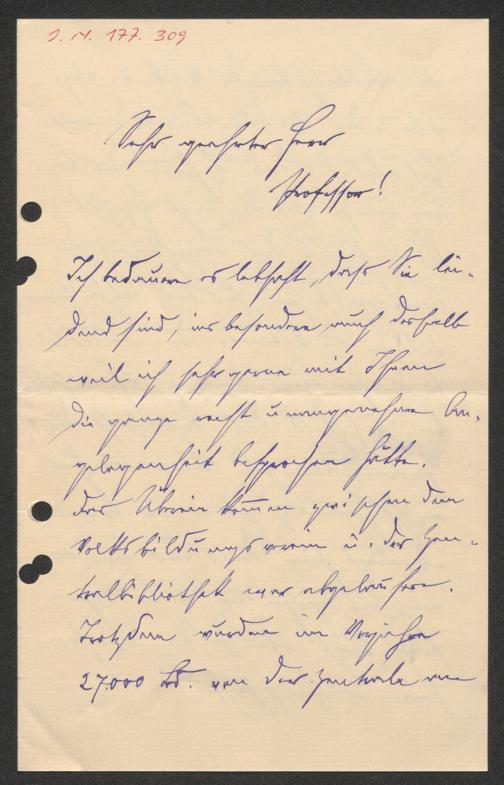 J. N. 177. 309
Sehr geehrter Herr
Professor!
Ich bedauere es lebhaft, dass Sie lei-
dend sind, insbesondere auch deshalb
weil ich sehr gerne mit Ihnen
die ganze recht unangenehme An-
gelegenheit besprochen hätte.
Das Übereinkommen zwischen dem
Volksbildungsverein u. der Zen-
tralbibliothek war abgelaufen.
Trotzdem wurden im Vorjahre
27.000 Bd. von der Zentrale an